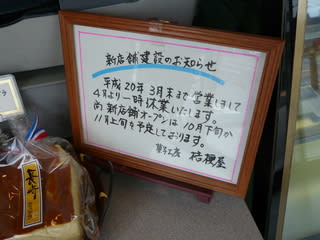 新店舗建設のお知らせ
平成20年3月末まで営業しまして
4月より一時休業いたします。
尚新店舗オープンは10月下旬か
11月上旬を予定しております。
菓子工房 桔梗屋